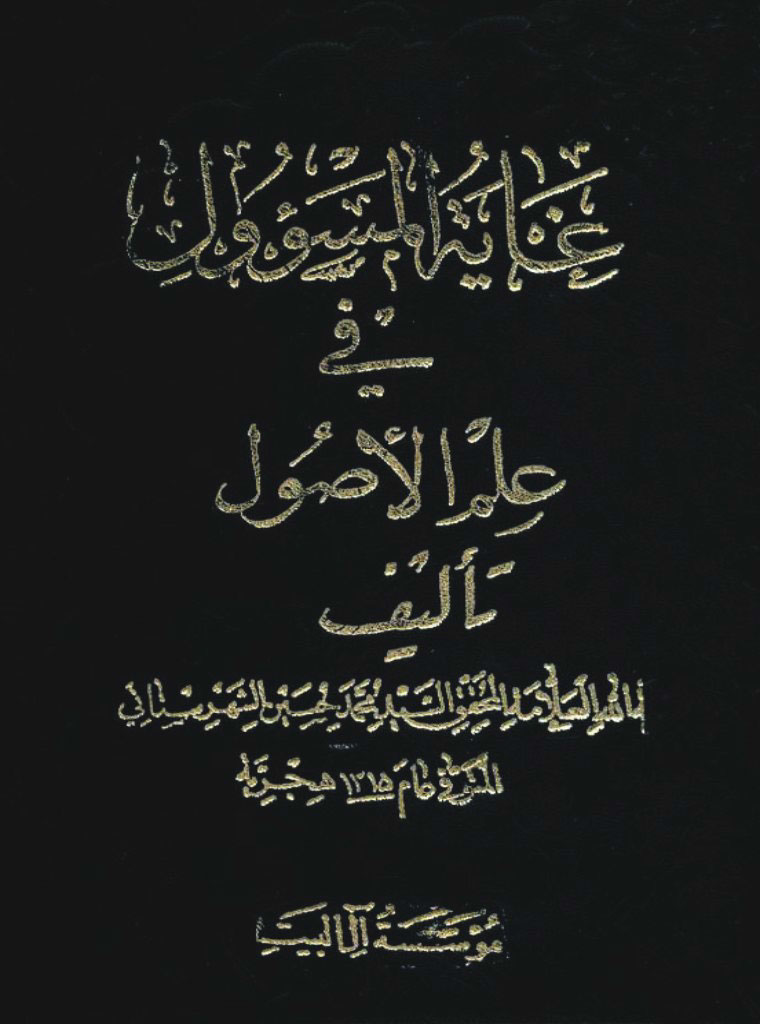 غَايَةُ الْمَسْؤُولِ
في
عِلْمِ الأُصُول
تَأليف
العَلَّامَةِ المحَقِّقِ السَّيِّد مُحَمَّد حُسَين الشَّهْرِسْتَاني
المتوفى عَامَ ١٢١٥ هِجْرِيَّه
مُؤَسَّسَةُ آلِ البَيت